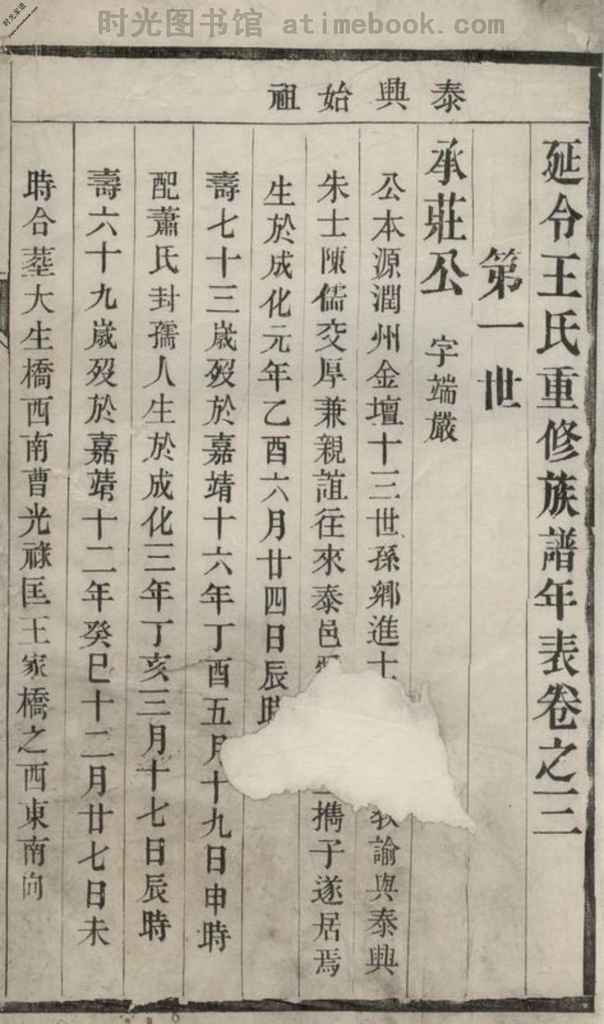 时光图书馆 atimebook.com
泰興始祖
延令王氏重修族譜年表卷之三
第一世
承莊公 字端嚴
公本源潤州金壇十三世孫鄉進士 教諭與泰興
朱士陳儒交厚兼親誼往來泰邑 攜子遂居焉
生於成化元年乙酉六月廿四日辰時
壽七十三歲歿於嘉靖十六年丁酉五月十九日申時
配蕭氏封孺人生於成化三年丁亥三月十七日辰時
壽六十九歲歿於嘉靖十二年癸巳十二月廿七日未
時合塟大生橋西南曹光祿匡王家橋之西東南向